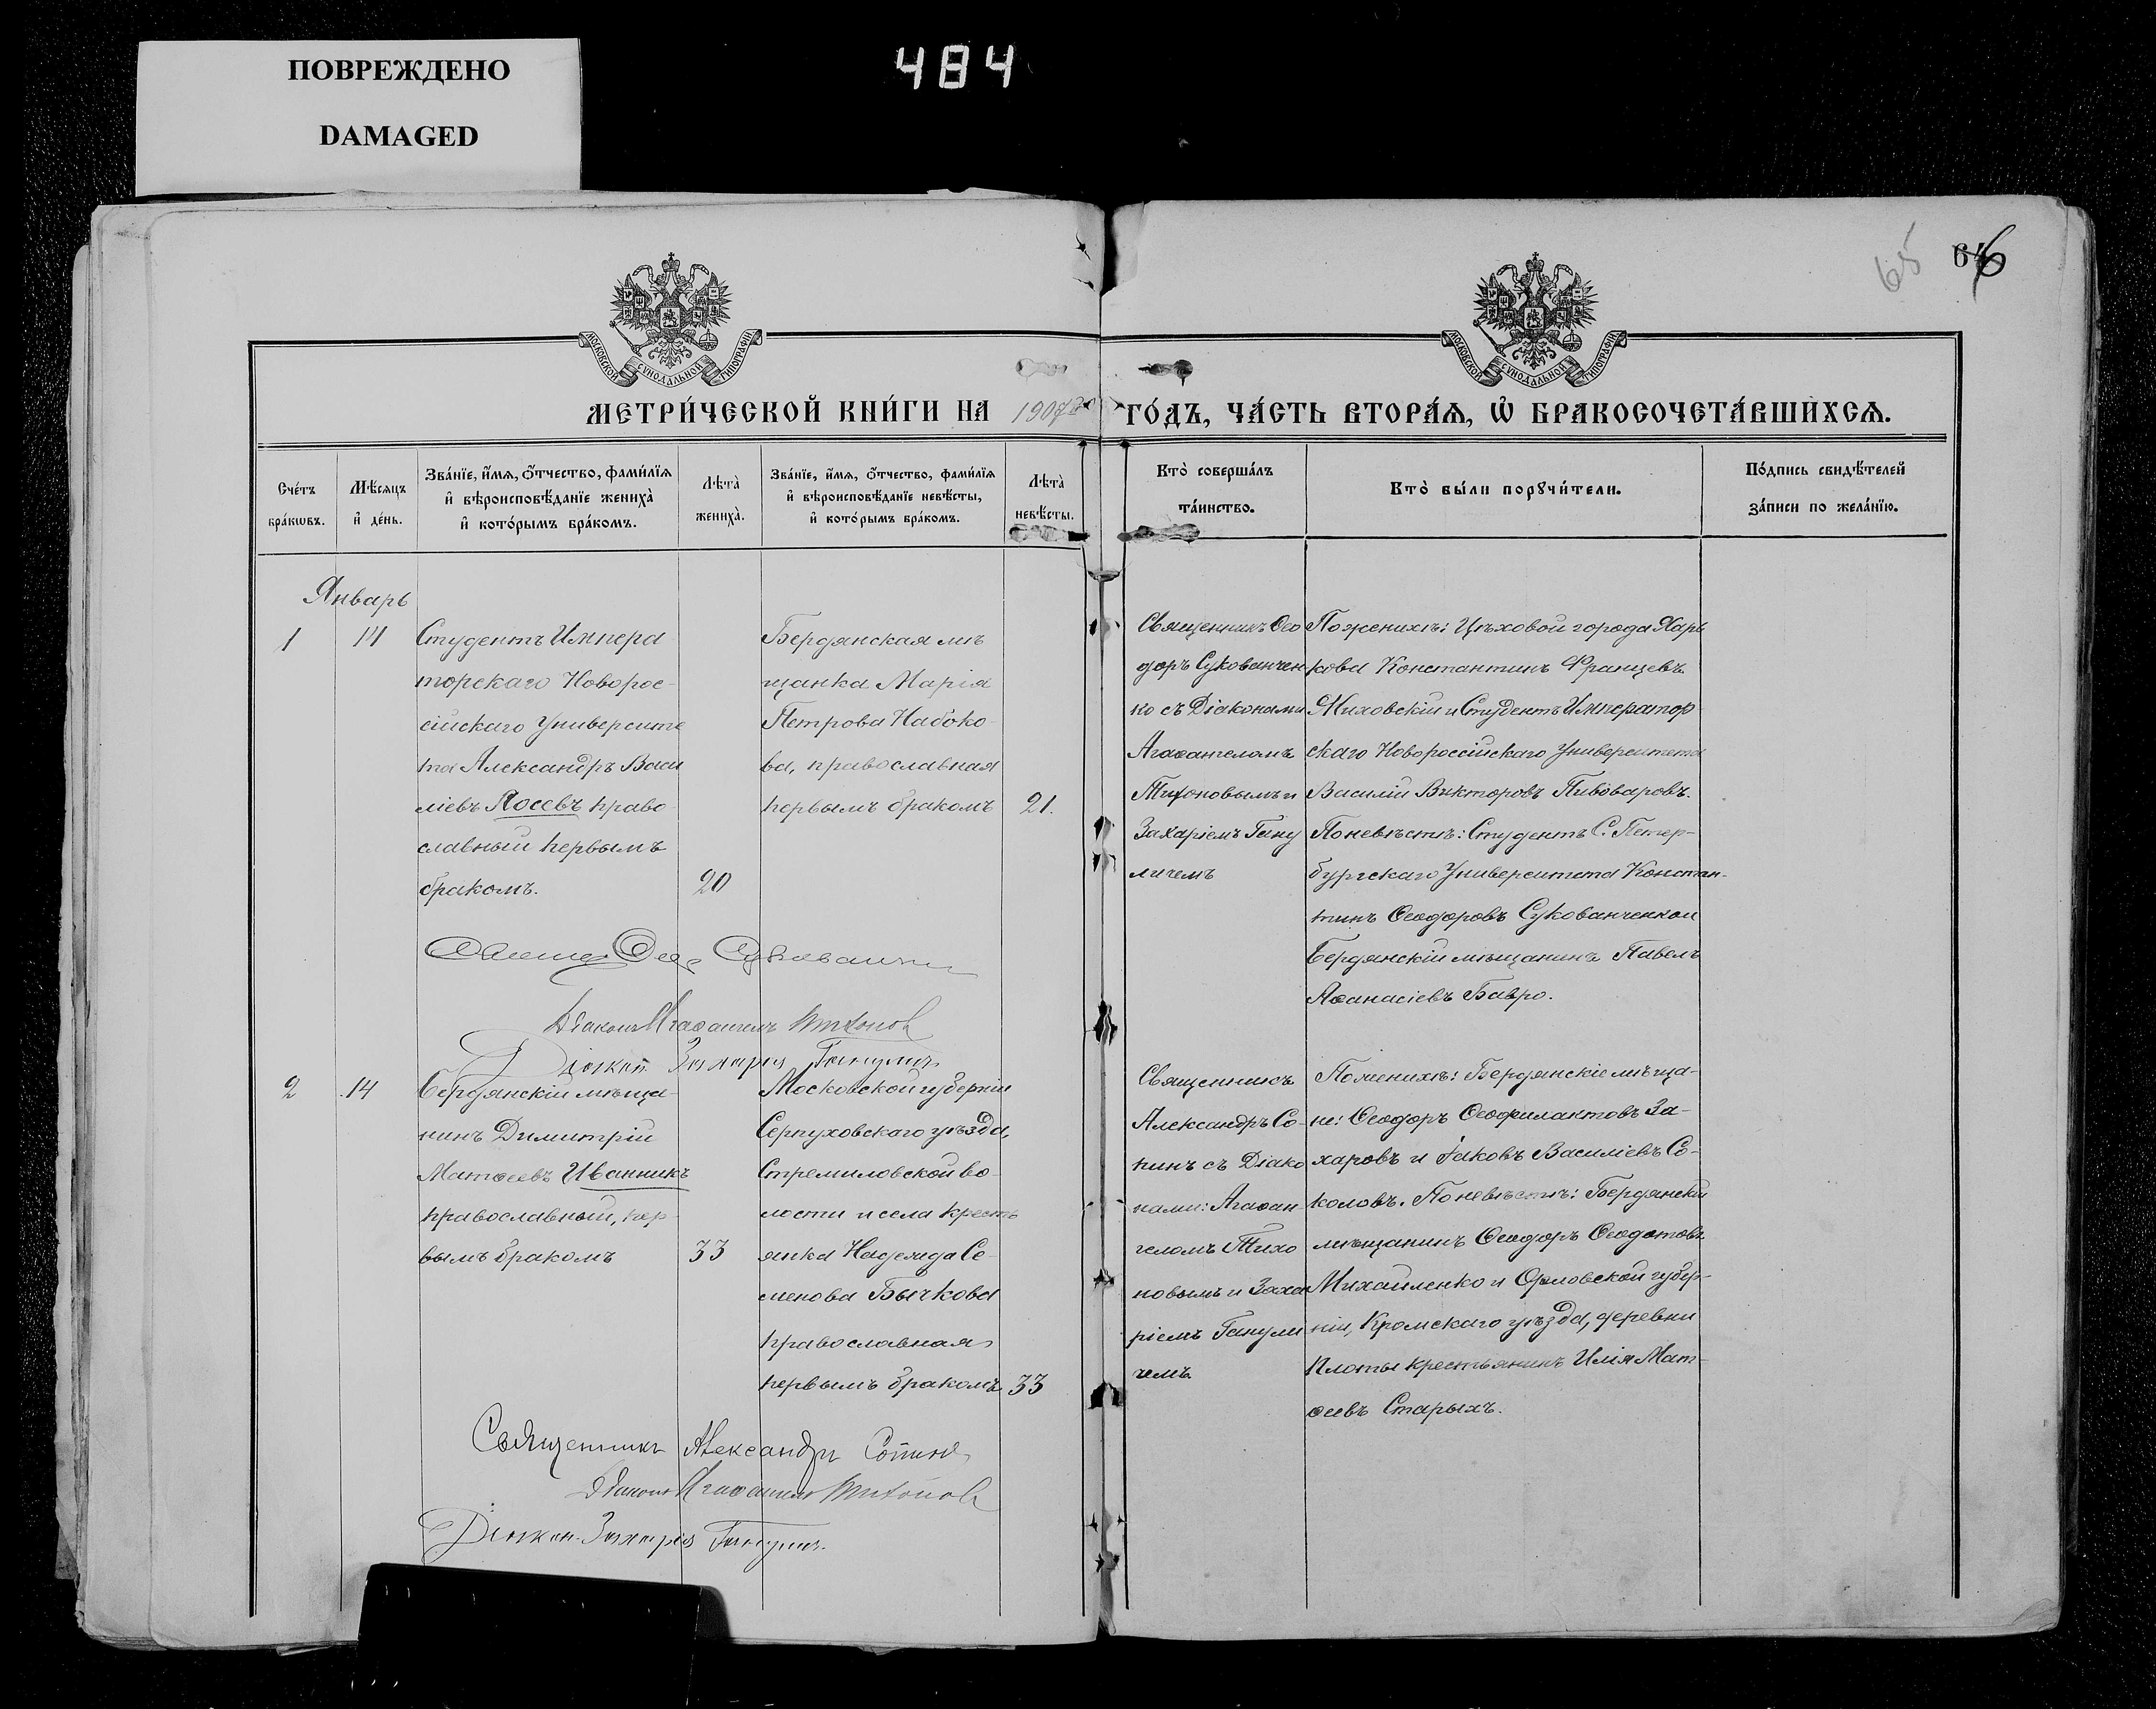 ПОВРЕЖДЕНО
DAMAGED
484
65
66
МОСКОВСКОЙ СѴНОДАЛЬНОЙ ТИПОГРАФІИ
МОСКОВСКОЙ СѴНОДАЛЬНОЙ ТИПОГРАФІИ
МЕТРИ́ЧЕСКОЙ КНИ́ГИ НА 1907 ГО́ДЪ, ЧА́СТЬ ВТОРА́Я, Ѡ҆ БРАКОСОЧЕТА́ВШИХСЯ.
Сче́тъ
бра́кѡвъ.
Мѣ́сяцъ
и҆ де́нь.
Зва́нїе, и҆́мя, ѻ҆́тчество, фами́лїя
и҆ вѣроисповѣ́данїе жениха̀
и҆ кото́рымъ бра́комъ.
Лѣта̀
жениха̀.
Зва́нїе, и҆́мя, ѻ҆́тчество, фами́лїя
и҆ вѣроисповѣ́данїе невѣ́сты,
и҆ кото́рымъ бра́комъ.
Лѣта̀
невѣ́сты.
Кто̀ соверша́лъ
та́инство.
Кто̀ бы́ли порꙋчи́тели.
По́дпись свидѣ́телей
за́писи по жела́нїю.
Январь
1
14
Студентъ Импера
торскаго Новорос-
сійскаго Университе
та Александръ Васи
ліевъ Лосевъ право
славный первымъ
бракомъ.
20
Бердянская мѣ
щанка Марія
Петрова Набоко-
ва, православная
первымъ бракомъ
21.
Священникъ Ѳео
доръ Сукованчен
ко съ Діаконами
Агаѳангеломъ
Тихоновымъ и
Захаріемъ Гану
личемъ
По женихѣ: Цѣховой города Харь
кова Константинъ Францевъ
Жиховскій и Студентъ Император
скаго Новороссійскаго Университета
Василій Викторовъ Пивоваровъ.
По невѣстѣ: Студентъ С. Петер-
бургскаго Университета Констан-
тинъ Ѳеодоровъ Сукованченко и
Бердянскій мѣщанинъ Павелъ
Аѳанасіевъ Бавро.
Діаконъ Агаѳангелъ Тихонов
Діакон Захарія Ганулич
2
14
Бердянскій мѣща-
нинъ Димитрій
Матѳеевъ Иванникъ
православный, пер-
вымъ бракомъ
33
Московской губерніи
Серпуховскаго уѣзда,
Стремиловской во-
лости и села кресть
янка Надежда Се-
менова Бычкова
православная
первымъ бракомъ
33
Священникъ
Александръ Со-
пинъ съ Діако
нами: Агаѳан
геломъ Тихо
новымъ и Заха
ріемъ Ганули
чемъ
По женихѣ: Бердянскіе мѣща-
не: Ѳеодоръ Ѳеофилактовъ За-
харовъ и Іаковъ Василіевъ Со-
коловъ. По невѣстѣ: Бердянскій
мѣщанинъ Ѳеодоръ Ѳеодотовъ
Михайленко и Орловской губер-
ніи, Кромскаго уѣзда, деревни
Плоты крестьянинъ Илія Мат-
ѳеевъ Старыхъ.
Священникъ Александръ Сопинъ
Діаконъ Агаѳангелъ Тихонов
Діакон Захарія Ганулич.